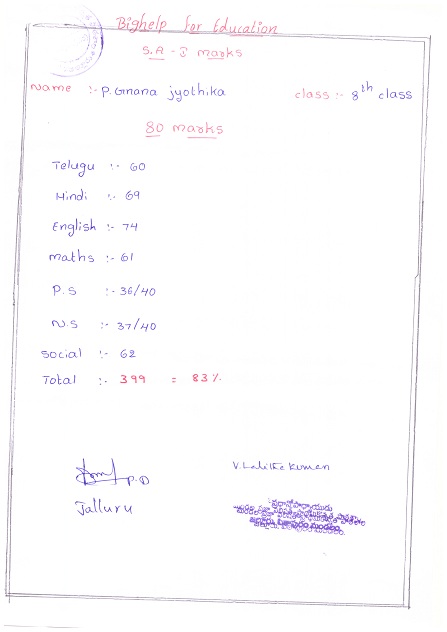 Bighelp for Education
S.A - I marks
Name :- P. Gnana jyothika class :- 8th class
80 marks
Telugu :- 60
Hindi :- 69
English :- 74
maths :- 61
P.S :- 36/40
N.S :- 37/40
social :- 62
Total :- 399 = 83%
P.D
V. Lalitha Kumari
Talluru